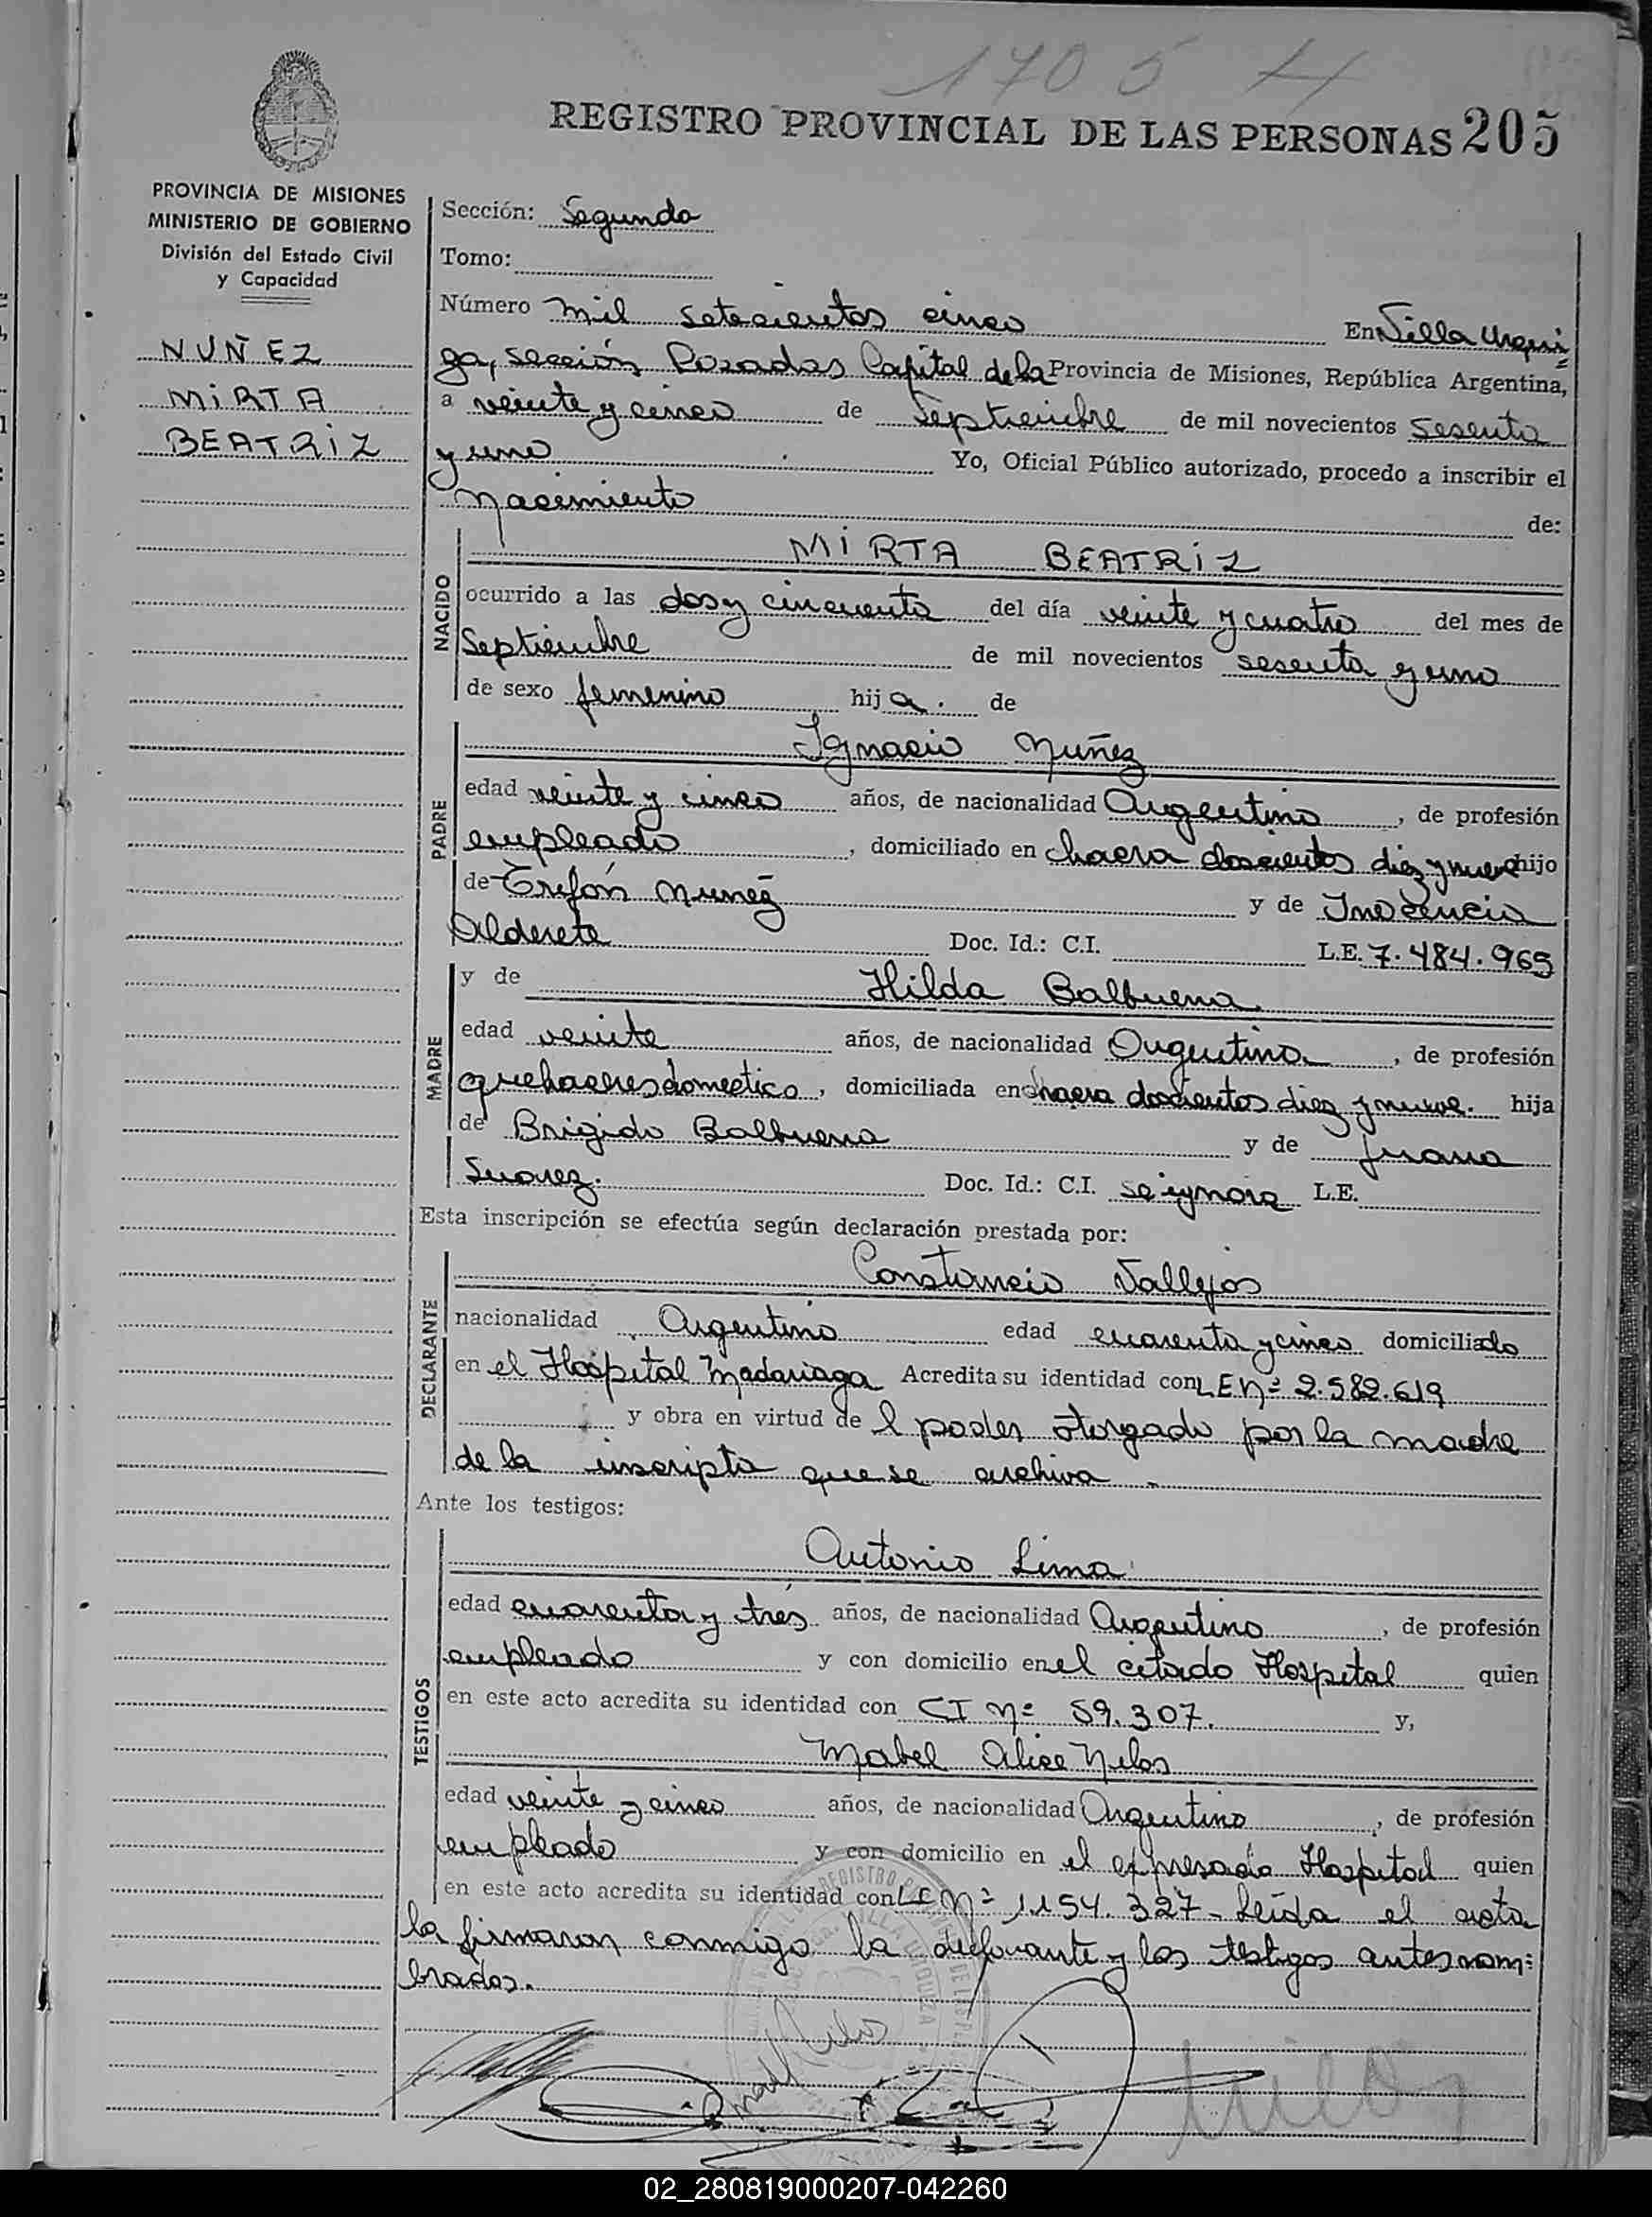 1705 H
REGISTRO PROVINCIAL DE LAS PERSONAS 205
PROVINCIA DE MISIONES
MINISTERIO DE GOBIERNO
División del Estado Civil
y Capacidad
NUÑEZ
MIRTA
BEATRIZ
Sección: Segunda
Tomo:
Número mil setecientos cinco En Villa Urqui=
za, sección Posadas Capital de la Provincia de Misiones, República Argentina,
a veinte y cinco de Septiembre de mil novecientos sesenta
y uno Yo, Oficial Público autorizado, procedo a inscribir el
nacimiento de:
MIRTA BEATRIZ
NACIDO
ocurrido a las dos y cincuenta del día veinte y cuatro del mes de
Septiembre de mil novecientos sesenta y uno
de sexo femenino hija. de
Ignacio Nuñez
PADRE
edad veinte y cinco años, de nacionalidad Argentino, de profesión
empleado, domiciliado en chacra doscientos diez y nueve hijo
de Trifón Nuñez y de Inocencia
Alderete Doc. Id.: C.I. L.E. 7.484.965
y de Hilda Balbuena
MADRE
edad veinte años, de nacionalidad Argentina, de profesión
quehaceres domestico, domiciliada en chacra doscientos diez y nueve. hija
de Brigido Balbuena y de Juana
Suarez. Doc. Id.: C.I. se ignora L.E.
Esta inscripción se efectúa según declaración prestada por:
Constancio Vallejos
DECLARANTE
nacionalidad Argentino edad cuarenta y cinco domiciliado
en el Hospital Madariaga Acredita su identidad con L E nº 2.582.619
y obra en virtud de l poder otorgado por la madre
de la inscripta que se archiva.
Ante los testigos:
Antonio Lima
TESTIGOS
edad cuarenta y tres años, de nacionalidad Argentino, de profesión
empleado y con domicilio en el citado Hospital quien
en este acto acredita su identidad con CI nº 59.307. y,
Mabel Alice Nilos
edad veinte y cinco años, de nacionalidad Argentino, de profesión
empleado y con domicilio en el expresado Hospital quien
en este acto acredita su identidad con L C nº 1.154.327 - Leída el acta
la firmaron conmigo la declarante y los testigos antes nom=
brados.
02_280819000207-042260